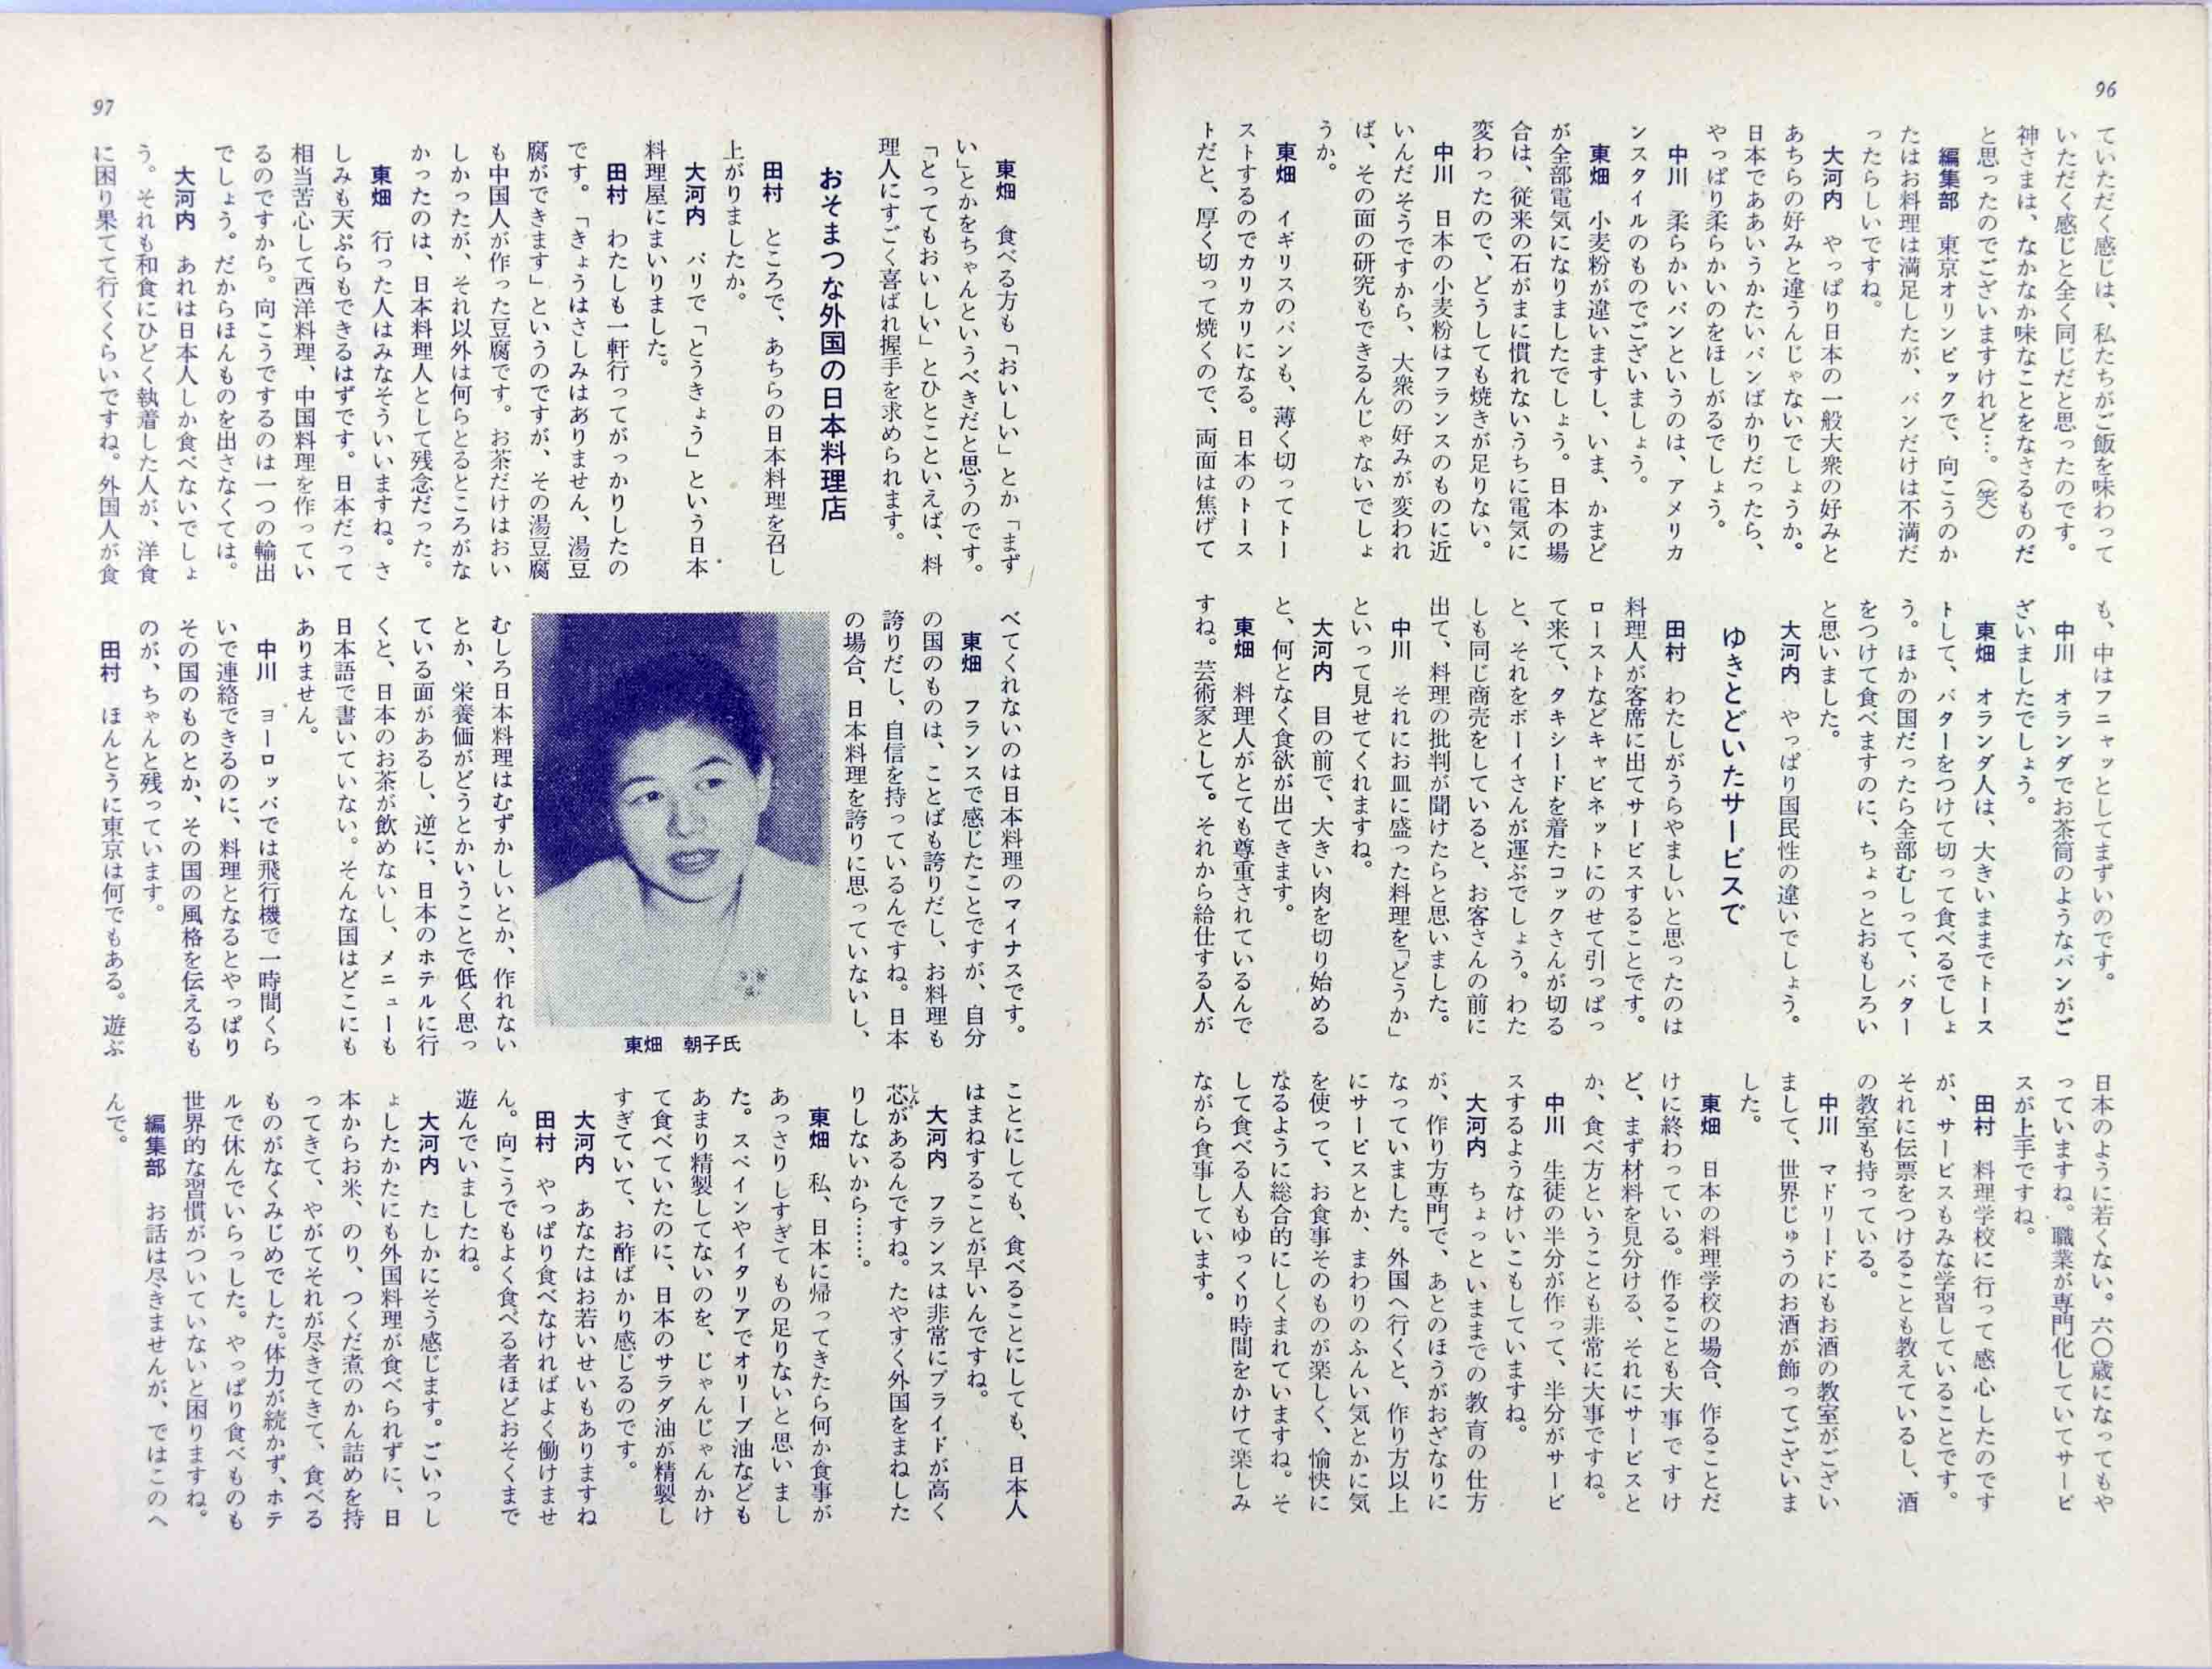 96
ていただく感じは、私たちがご飯を味わって
いただく感じと全く同じだと思ったのです。
神さまは、なかなか味なことをなさるものだ
と思ったのでございますけれど…。（笑）
編集部　東京オリンピックで、向こうのか
たはお料理は満足したが、パンだけは不満だ
ったらしいですね。
大河内　やっぱり日本の一般大衆の好みと
あちらの好みと違うんじゃないでしょうか。
日本でああいうかたいパンばかりだったら、
やっぱり柔らかいのをほしがるでしょう。
中川　柔らかいパンというのは、アメリカ
ンスタイルのものでございましょう。
東畑　小麦粉が違いますし、いま、かまど
が全部電気になりましたでしょう。日本の場
合は、従来の石がまに慣れないうちに電気に
変わったので、どうしても焼きが足りない。
中川　日本の小麦粉はフランスのものに近
いんだそうですから、大衆の好みが変われ
ば、その面の研究もできるんじゃないでしょ
うか。
東畑　イギリスのパンも、薄く切ってトー
ストするのでカリカリになる。日本のトース
トだと、厚く切って焼くので、両面は焦げて
も、中はフニャッとしてまずいのです。
中川　オランダでお茶筒のようなパンがご
ざいましたでしょう。
東畑　オランダ人は、大きいままでトース
トして、バターをつけて切って食べるでしょ
う。ほかの国だったら全部むしって、バター
をつけて食べますのに、ちょっとおもしろい
と思いました。
大河内　やっぱり国民性の違いでしょう。
ゆきとどいたサービスで
田村　わたしがうらやましいと思ったのは
料理人が客席に出てサービスすることです。
ローストなどキャビネットにのせて引っぱっ
て来て、タキシードを着たコックさんが切る
と、それをボーイさんが運ぶでしょう。わた
しも同じ商売をしていると、お客さんの前に
出て、料理の批判が聞けたらと思いました。
中川　それにお皿に盛った料理を「どうか」
といって見せてくれますね。
大河内　目の前で、大きい肉を切り始める
と、何となく食欲が出てきます。
東畑　料理人がとても尊重されているんで
すね。芸術家として。それから給仕する人が
日本のように若くない。六〇歳になってもや
っていますね。職業が専門化していてサービ
スが上手ですね。
田村　料理学校に行って感心したのです
が、サービスもみな学習していることです。
それに伝票をつけることも教えているし、酒
の教室も持っている。
中川　マドリードにもお酒の教室がござい
まして、世界じゅうのお酒が飾ってございま
した。
東畑　日本の料理学校の場合、作ることだ
けに終わっている。作ることも大事ですけ
ど、まず材料を見分ける、それにサービスと
か、食べ方ということも非常に大事ですね。
中川　生徒の半分が作って、半分がサービ
スするようなけいこもしていますね。
大河内　ちょっといままでの教育の仕方
が、作り方専門で、あとのほうがおざなりに
なっていました。外国へ行くと、作り方以上
にサービスとか、まわりのふんい気とかに気
を使って、お食事そのものが楽しく、愉快に
なるように総合的にしくまれていますね。そ
して食べる人もゆっくり時間をかけて楽しみ
ながら食事しています。
97
東畑　食べる方も「おいしい」とか「まず
い」とかをちゃんというべきだと思うのです。
「とってもおいしい」とひとこといえば、料
理人にすごく喜ばれ握手を求められます。
おそまつな外国の日本料理店
田村　ところで、あちらの日本料理を召し
上がりましたか。
大河内　パリで「とうきょう」という日本
料理屋にまいりました。
田村　わたしも一軒行ってがっかりしたの
です。「きょうはさしみはありません、湯豆
腐ができます」というのですが、その湯豆腐
も中国人が作った豆腐です。お茶だけはおい
しかったが、それ以外は何らとるところがな
かったのは、日本料理人として残念だった。
東畑　行った人はみなそういいますね。さ
しみも天ぷらもできるはずです。日本だって
相当苦心して西洋料理、中国料理を作ってい
るのですから。向こうでするのは一つの輸出
でしょう。だからほんものを出さなくては。
大河内　あれは日本人しか食べないでしょ
う。それも和食にひどく執着した人が、洋食
に困り果てて行くくらいですね。外国人が食
べてくれないのは日本料理のマイナスです。
東畑　フランスで感じたことですが、自分
の国のものは、ことばも誇りだし、お料理も
誇りだし、自信を持っているんですね。日本
の場合、日本料理を誇りに思っていないし、
東畑　朝子氏
むしろ日本料理はむずかしいとか、作れない
とか、栄養価がどうとかいうことで低く思っ
ている面があるし、逆に、日本のホテルに行
くと、日本のお茶が飲めないし、メニューも
日本語で書いていない。そんな国はどこにも
ありません。
中川　ヨーロッパでは飛行機で一時間くら
いで連絡できるのに、料理となるとやっぱり
その国のものとか、その国の風格を伝えるも
のが、ちゃんと残っています。
田村　ほんとうに東京は何でもある。遊ぶ
ことにしても、食べることにしても、日本人
はまねすることが早いんですね。
大河内　フランスは非常にプライドが高く
芯があるんですね。たやすく外国をまねした
しん
りしないから……。
東畑　私、日本に帰ってきたら何か食事が
あっさりしすぎてもの足りないと思いまし
た。スペインやイタリアでオリーブ油なども
あまり精製してないのを、じゃんじゃんかけ
て食べていたのに、日本のサラダ油が精製し
すぎていて、お酢ばかり感じるのです。
大河内　あなたはお若いせいもありますね
田村　やっぱり食べなければよく働けませ
ん。向こうでもよく食べる者ほどおそくまで
遊んでいましたね。
大河内　たしかにそう感じます。ごいっし
ょしたかたにも外国料理が食べられずに、日
本からお米、のり、つくだ煮のかん詰めを持
ってきて、やがてそれが尽きてきて、食べる
ものがなくみじめでした。体力が続かず、ホテ
ルで休んでいらっした。やっぱり食べものも
世界的な習慣がついていないと困りますね。
編集部　お話は尽きませんが、ではこのへ
んで。